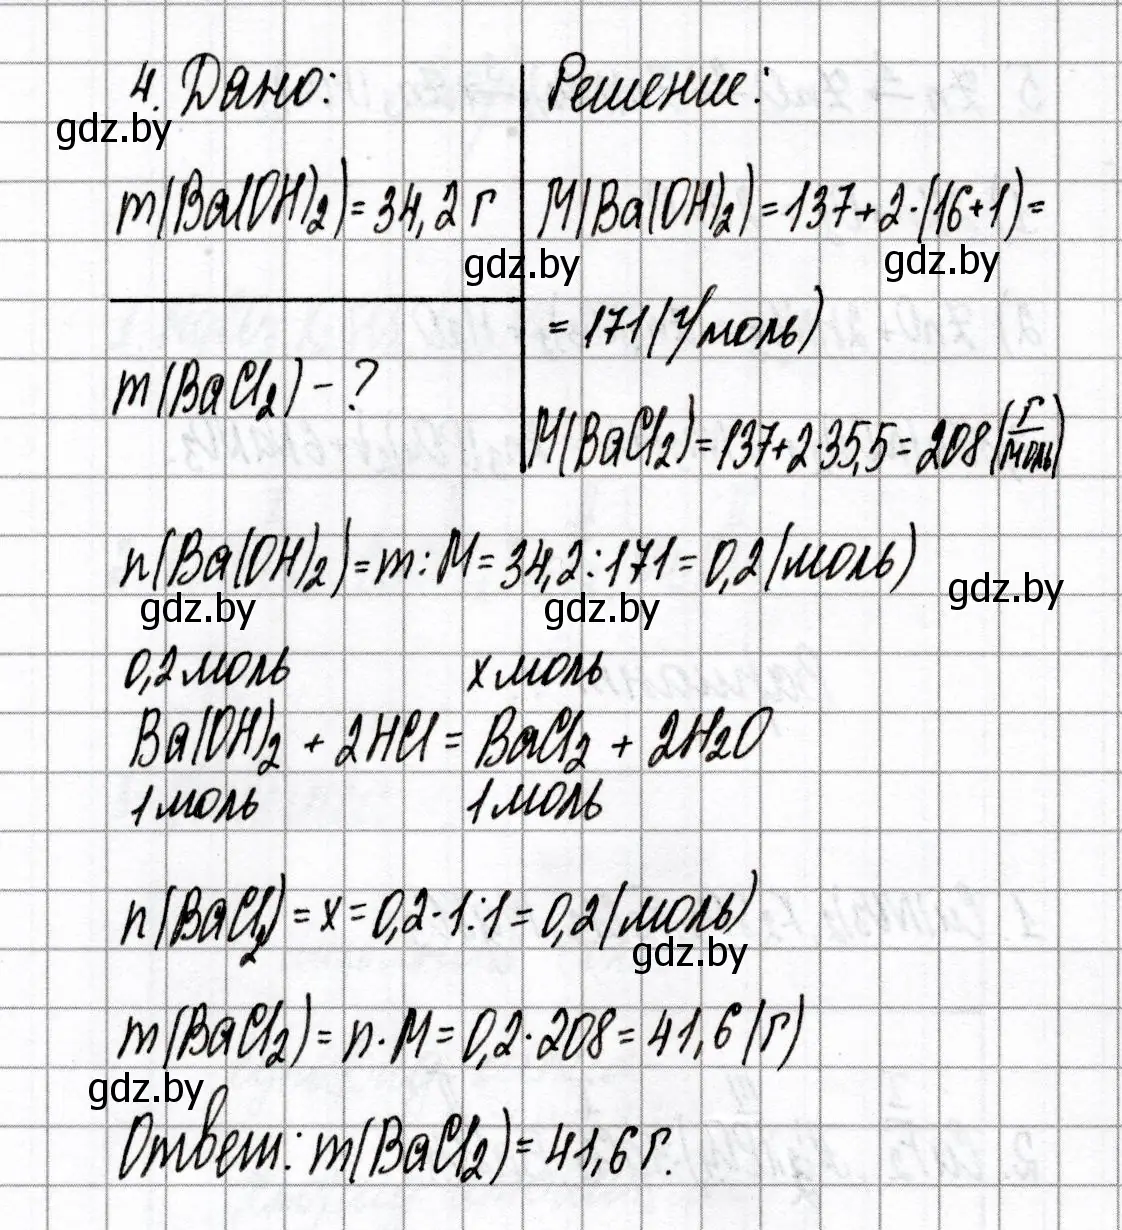 4. Дано:
Решение:
gdz.by
m(Ba(OH)₂) = 34,2 г
M(Ba(OH)₂) = 137+2·(16+1) =
gdz.by
gdz.by
= 171 (г/моль)
m(BaCl₂) - ?
M(BaCl₂) = 137+2·35,5 = 208 (г/моль)
n(Ba(OH)₂) = m : M = 34,2 : 171 = 0,2 (моль)
gdz.by gdz.by gdz.by
0,2 моль x моль
Ba(OH)₂ + 2HCl = BaCl₂ + 2H₂O
1 моль 1 моль
n(BaCl₂) = x = 0,2·1:1 = 0,2 (моль)
gdz.by
m(BaCl₂) = n·M = 0,2·208 = 41,6 (г)
gdz.by
Ответ: m(BaCl₂) = 41,6 г.